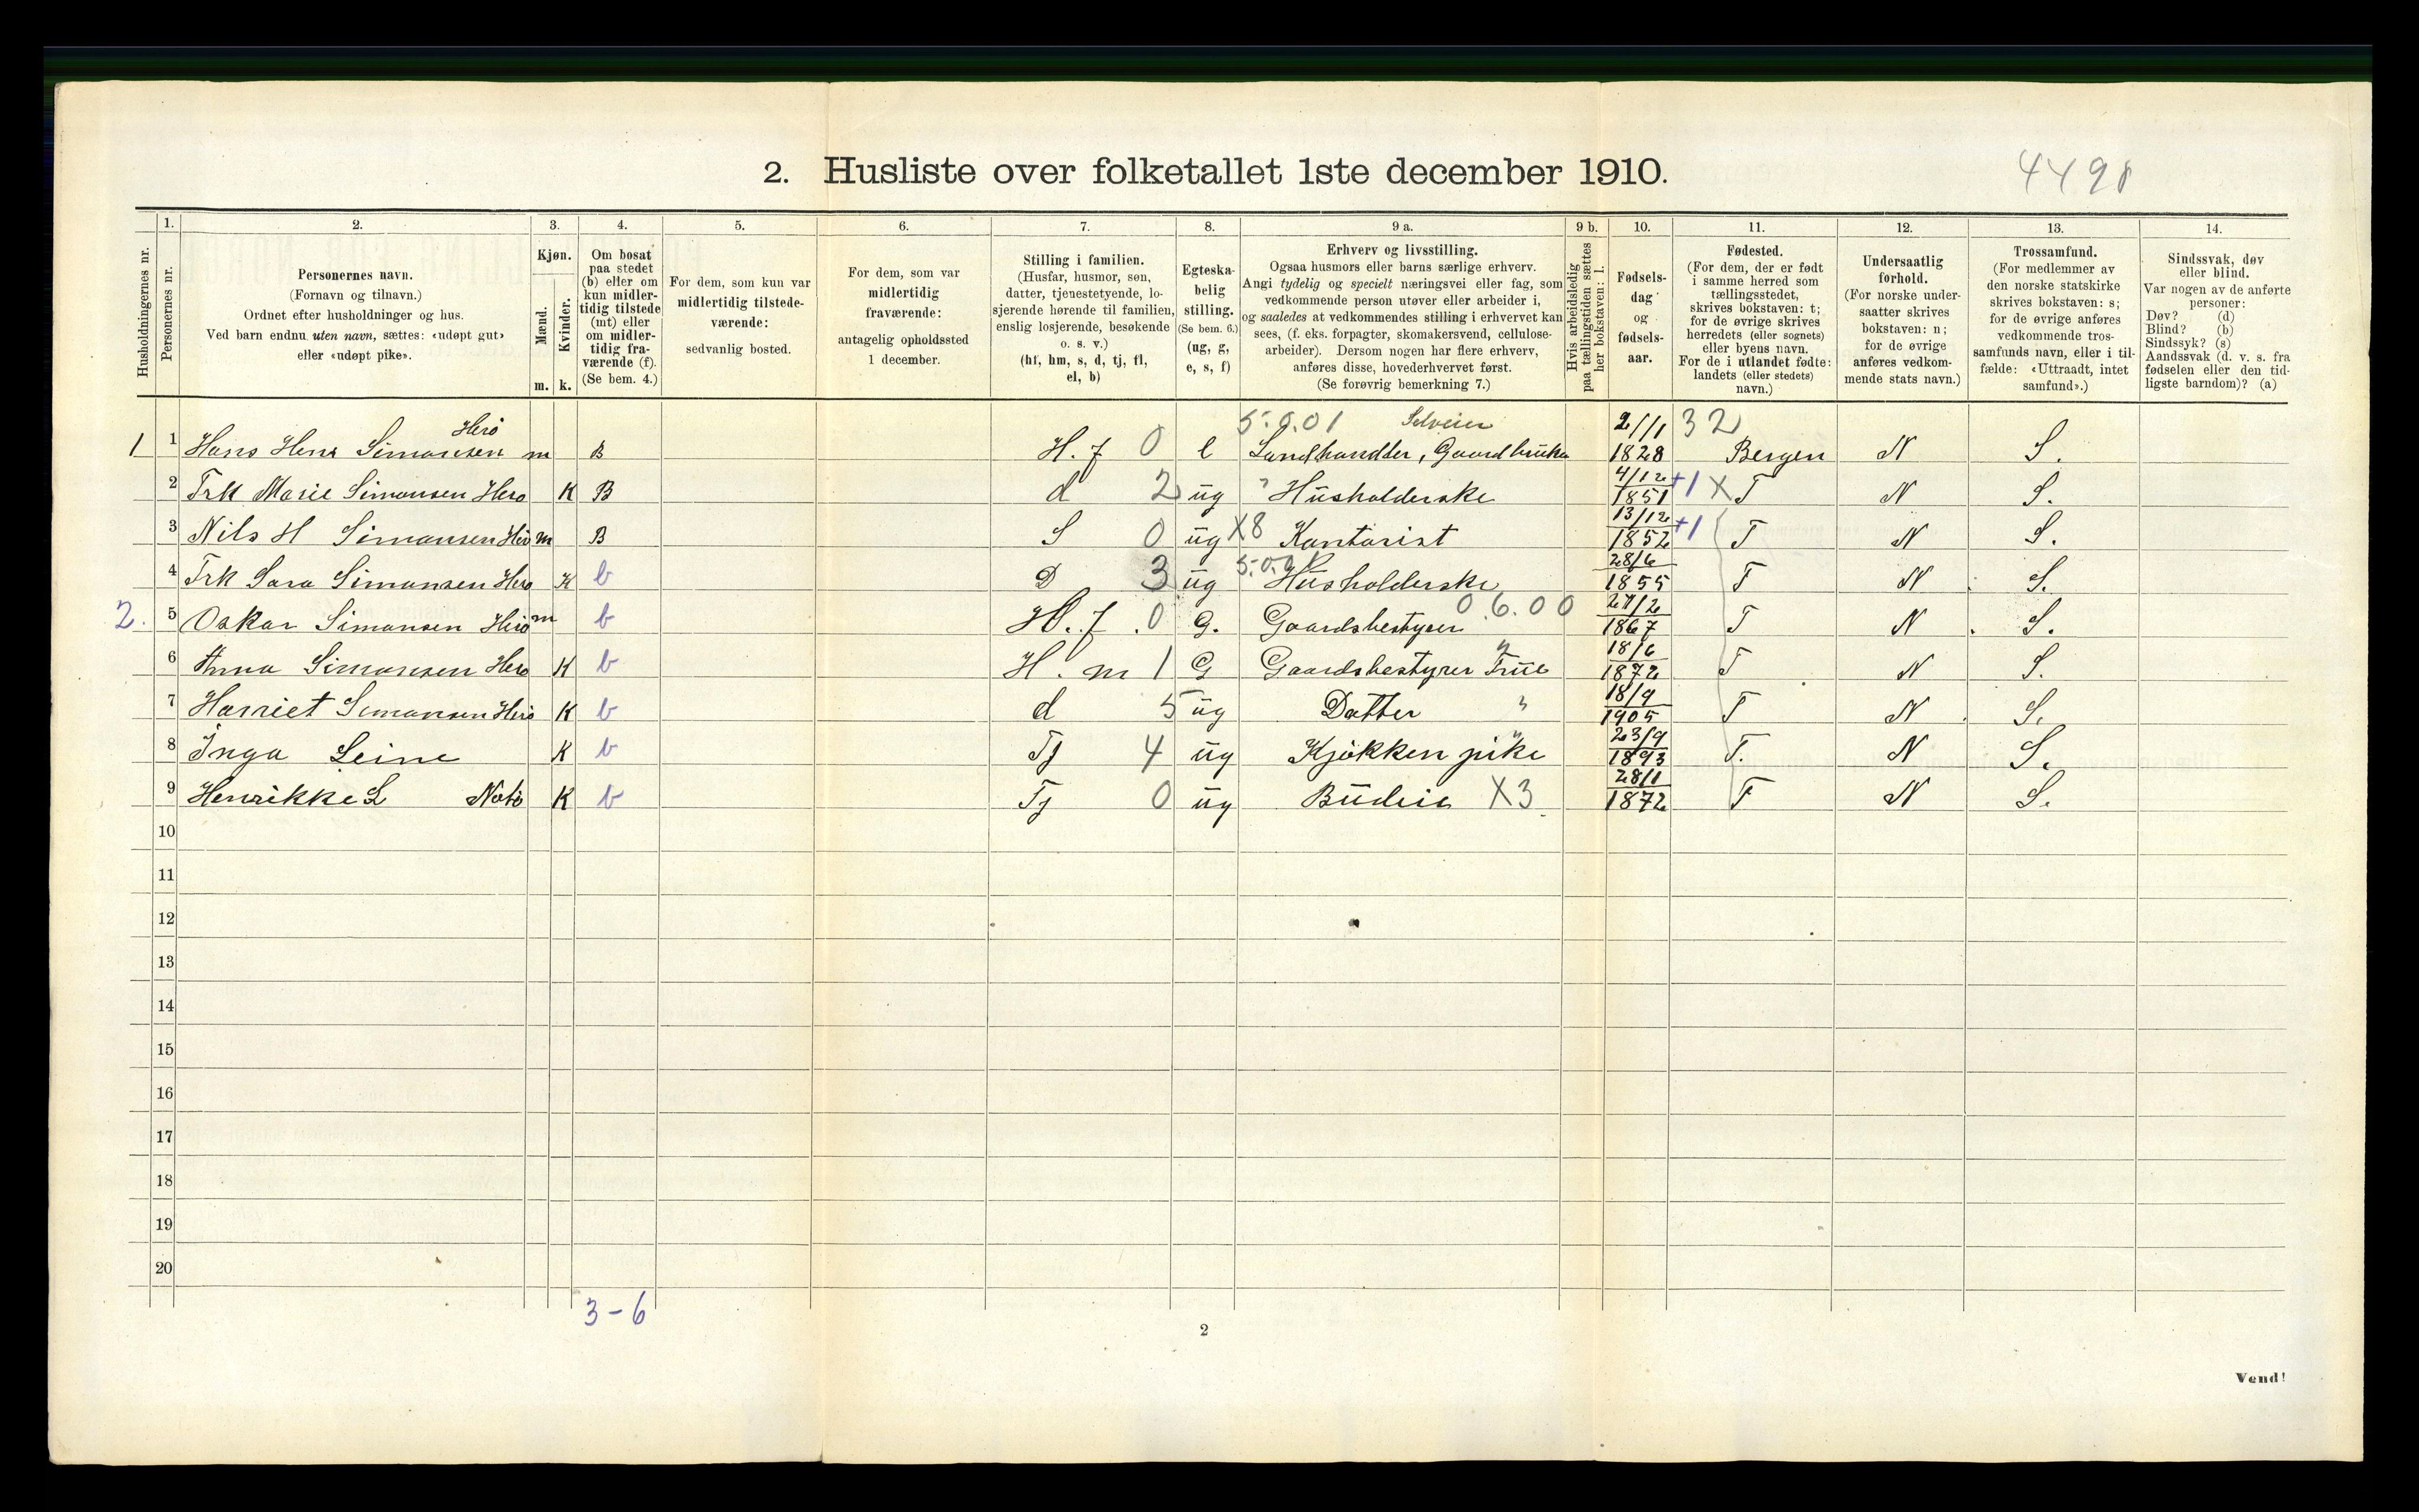 2. Husliste over folketallet 1ste december 1910.
4498
Husholdningernes nr.
1. Personernes nr.
2. Personernes navn. (Fornavn og tilnavn.) Ordnet efter husholdninger og hus. Ved barn endnu uten navn, sættes: «udøpt gut» eller «udøpt pike».
3. Kjøn. Mænd. m. Kvinder. k.
4. Om bosat paa stedet (b) eller om kun midlertidig tilstede (mt) eller om midlertidig fraværende (f). (Se bem. 4.)
5. For dem, som kun var midlertidig tilstedeværende: sedvanlig bosted.
6. For dem, som var midlertidig fraværende: antagelig opholdssted 1 december.
7. Stilling i familien. (Husfar, husmor, søn, datter, tjenestetyende, losjerende hørende til familien, enslig losjerende, besøkende o. s. v.) (hf, hm, s, d, tj, fl, el, b)
8. Egteskabelig stilling. (Se bem. 6.) (ug, g, e, s, f)
9 a. Erhverv og livsstilling. Ogsaa husmors eller barns særlige erhverv. Angi tydelig og specielt næringsvei eller fag, som vedkommende person utøver eller arbeider i, og saaledes at vedkommendes stilling i erhvervet kan sees, (f. eks. forpagter, skomakersvend, cellulosearbeider). Dersom nogen har flere erhverv, anføres disse, hovederhvervet først. (Se forøvrig bemerkning 7.)
9 b. Hvis arbeidsledig paa tællingstiden sættes her bokstaven: l.
10. Fødselsdag og fødselsaar.
11. Fødested. (For dem, der er født i samme herred som tællingsstedet, skrives bokstaven: t; for de øvrige skrives herredets (eller sognets) eller byens navn. For de i utlandet fødte: landets (eller stedets) navn.)
12. Undersaatlig forhold. (For norske undersaatter skrives bokstaven: n; for de øvrige anføres vedkommende stats navn.)
13. Trossamfund. (For medlemmer av den norske statskirke skrives bokstaven: s; for de øvrige anføres vedkommende trossamfunds navn, eller i tilfælde: «Uttraadt, intet samfund».)
14. Sindssvak, døv eller blind. Var nogen av de anførte personer: Døv? (d) Blind? (b) Sindssyk? (s) Aandssvak (d. v. s. fra fødselen eller den tidligste barndom)? (a)
Herø 5.0.01 Selveier 2/1 32
1 1 Hans Henr Simonsen m B H.f 0 e Landhandler, Gaardbruker 1828 Bergen N S.
2 Frk Marie Simonsen Herø K B d 2 ug " Husholderske 4/12 1851 +1 X T N S.
3 Nils H Simonsen Herø m B S 0 ug X8 Kontorist 13/12 1852 +1 T N S.
4 Frk Sara Simonsen Herø K b D 3 ug Husholderske 28/6 1855 T N S.
2. 5 Oskar Simonsen Herø m b H.f. 0 G. Gaardsbestyrer 0.6.00 27/2 1867 T N S.
6 Anna Simonsen Herø K b H.m 1 G Gaardsbestyrer Frue " 18/6 1872 T N S.
7 Harriet Simonsen Herø K b d 5 ug Datter " 18/9 1905 T N S.
8 Inga Leine K b Tj 4 ug Kjøkken pike " 23/9 1893 T. N S.
9 Henrikke L Notø K b Tj 0 ug Budeie X3 28/1 1872 T N S.
10
11
12
13
14
15
16
17
18
19
20
3-6
2
Vend!